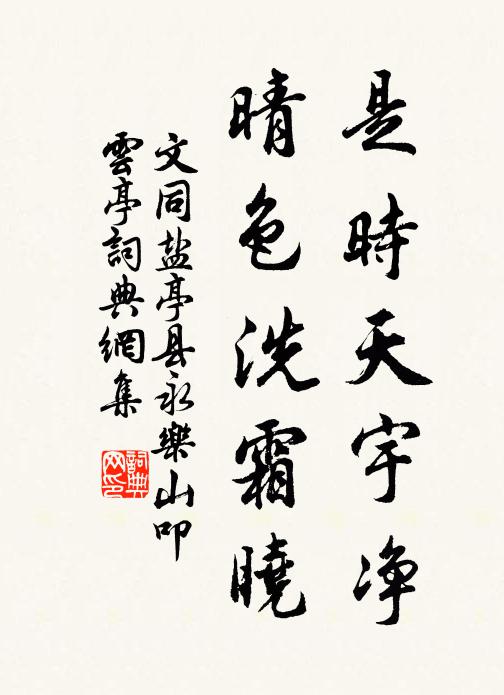 是時天宇净
晴色洗霜曉
文同盐亭县永樂山叩
雲亭詞典網集
詞典网印